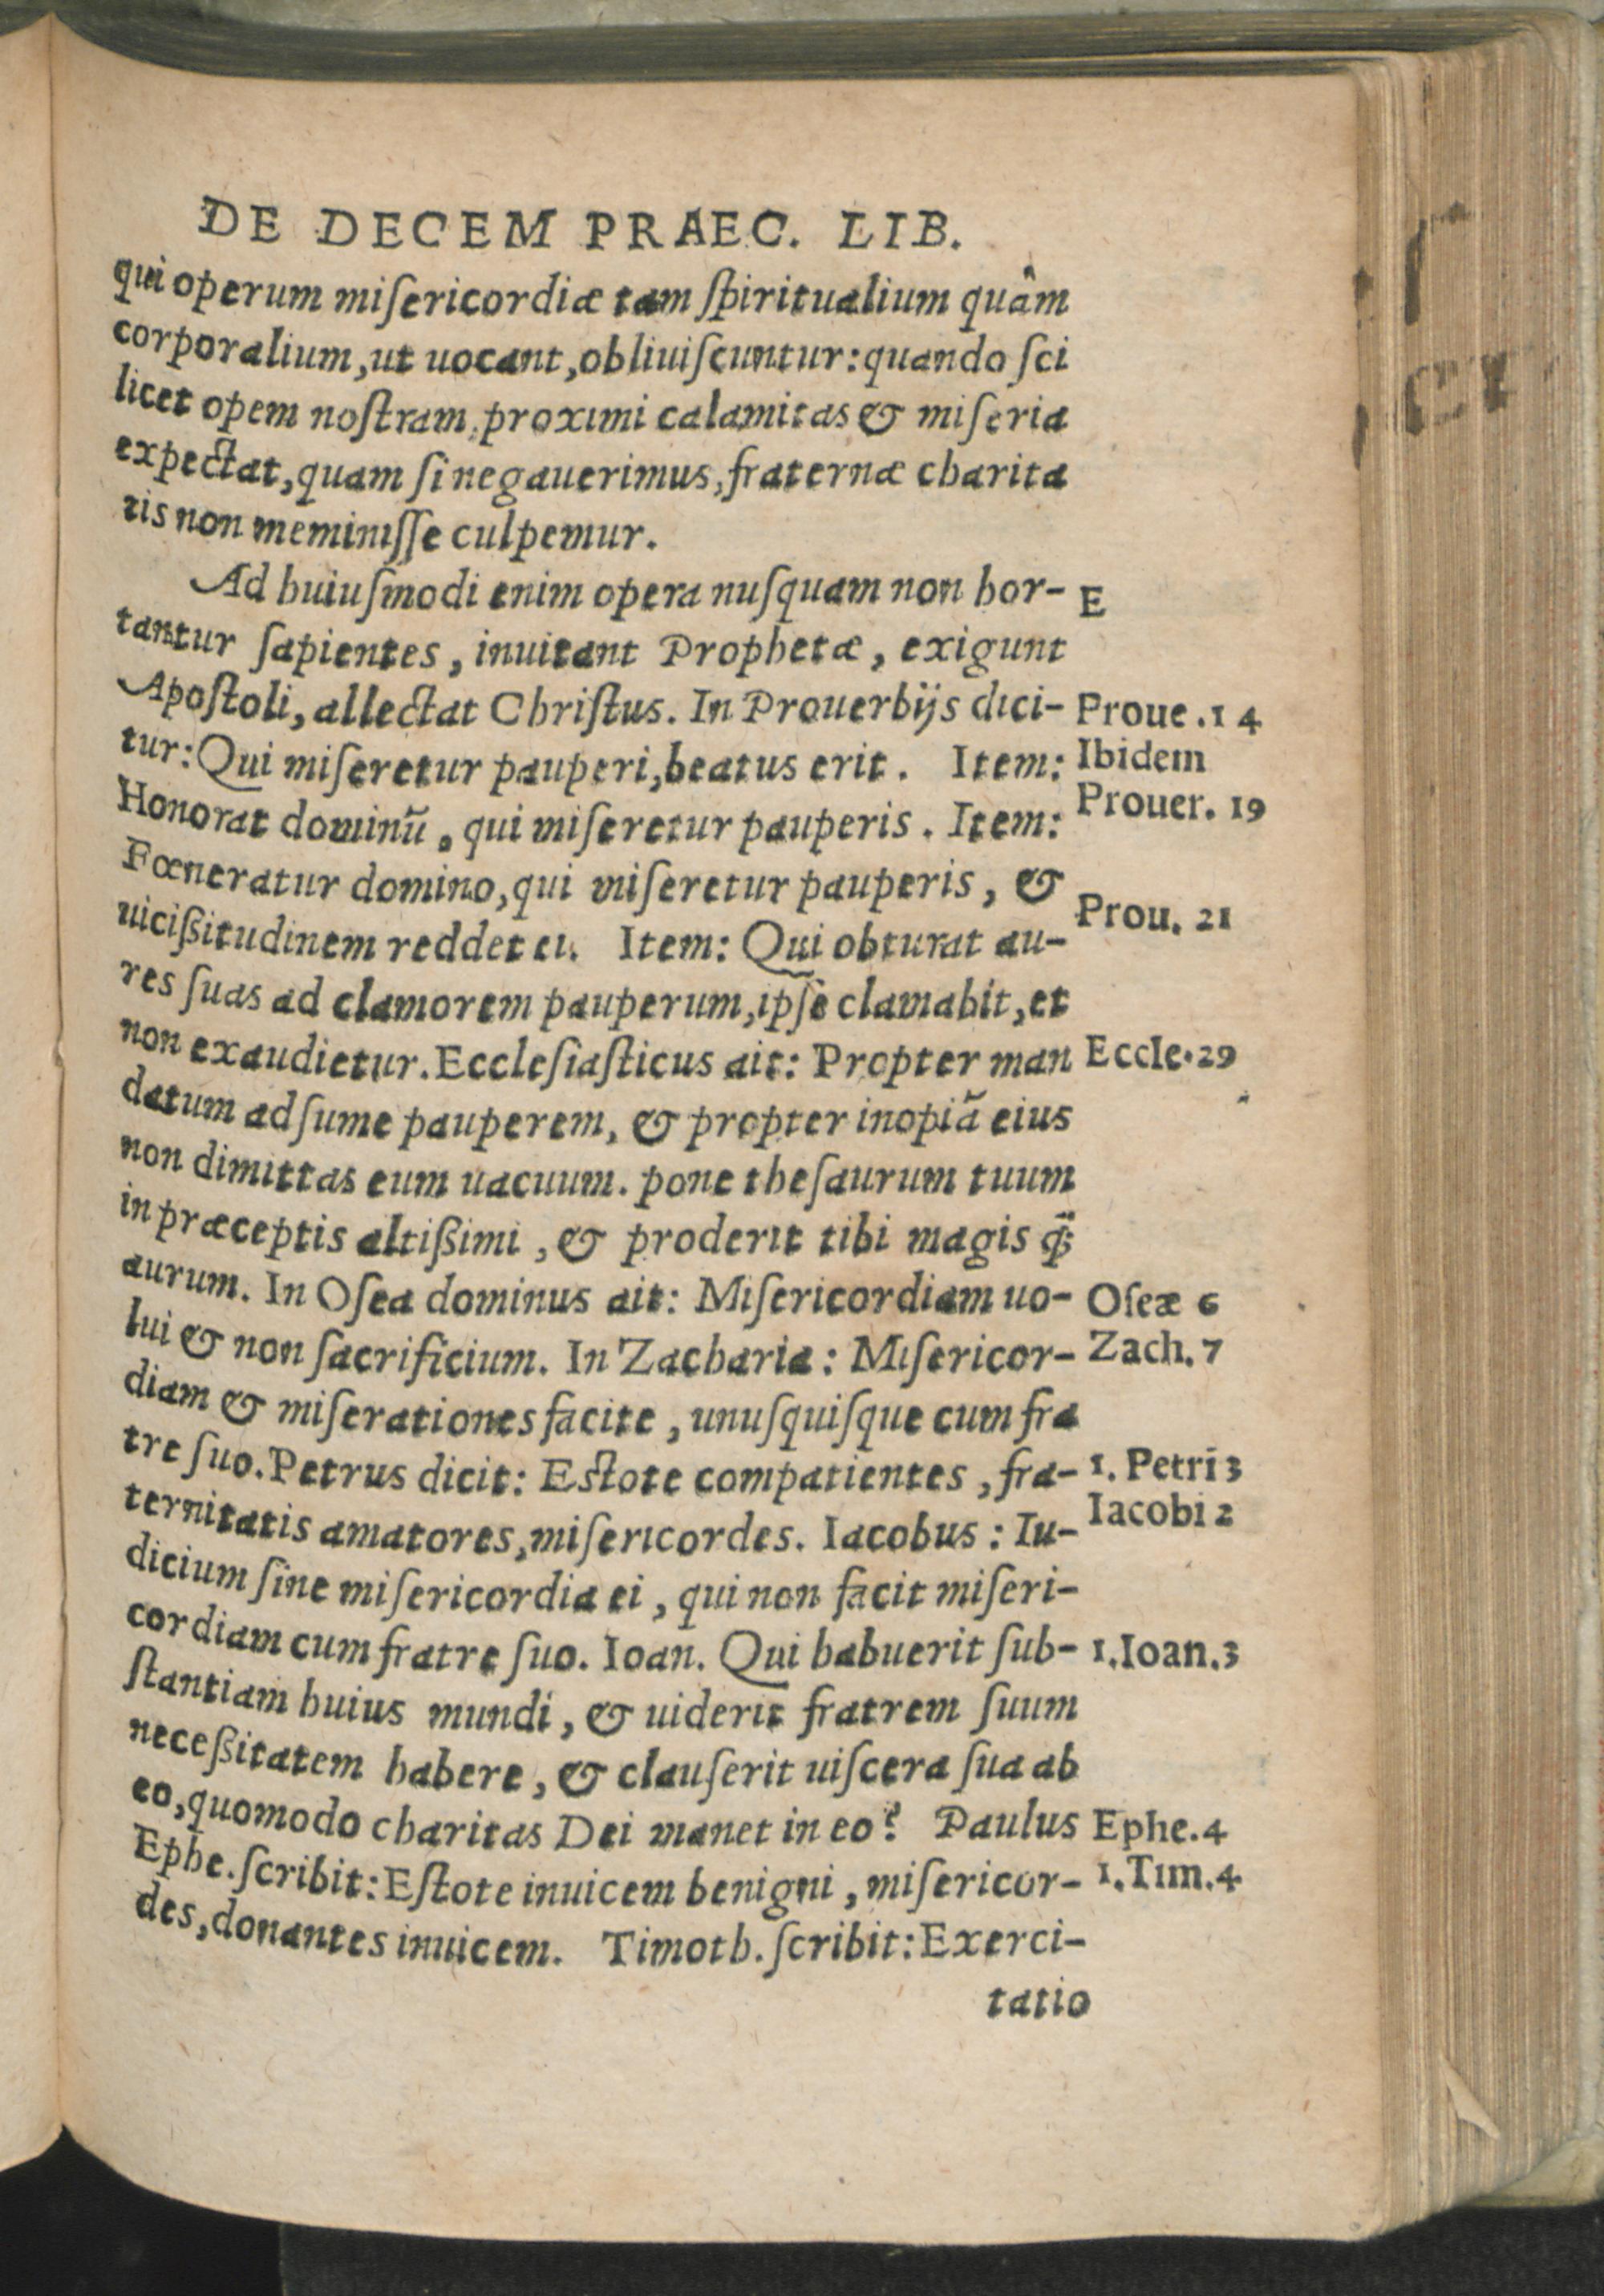 DE DECEM PRAEC. LIB.
qui operum miſericordiæ tam ſpiritualium quâm
corporalium, ut uocant, obliuiſcuntur: quando ſci
licet opem noſtram proximi calamitas & miſeria
expectat, quam ſi negauerimus, fraternæ charita
tis non meminiſſe culpemur.
Ad huiuſmodi enim opera nuſquam non hor-
E
tantur ſapientes, inuitant Prophetæ, exigunt
Apoſtoli, allectat Chriſtus. In Prouerbijs dici-
Proue. 14
tur: Qui miſeretur pauperi, beatus erit. Item:
Ibidem
Honorat dominū, qui miſeretur pauperis. Item:
Prouer. 19
Fœneratur domino, qui miſeretur pauperis, &
uicißitudinem reddet ei. Item: Qui obturat au-
Prou. 21
res ſuas ad clamorem pauperum, ipſe clamabit, et
non exaudietur. Eccleſiaſticus ait: Propter man
Eccle. 29
datum adſume pauperem, & propter inopiā eius
non dimittas eum uacuum. pone theſaurum tuum
in præceptis altißimi, & proderit tibi magis ꝙ̈
aurum. In Oſea dominus ait: Miſericordiam uo-
Oſeæ 6
lui & non ſacrificium. In Zacharia: Miſericor-
Zach. 7
diam & miſerationes facite, unuſquiſque cum fra
tre ſuo. Petrus dicit: Eſtote compatientes, fra-
1. Petri 3
ternitatis amatores, miſericordes. Iacobus: Iu-
Iacobi 2
dicium ſine miſericordia ei, qui non facit miſeri-
cordiam cum fratre ſuo. Ioan. Qui habuerit ſub-
1. Ioan. 3
ſtantiam huius mundi, & uiderit fratrem ſuum
neceßitatem habere, & clauſerit uiſcera ſua ab
eo, quomodo charitas Dei manet in eo? Paulus
Ephe. 4
Ephe. ſcribit: Eſtote inuicem benigni, miſericor-
1. Tim. 4
des, donantes inuicem. Timoth. ſcribit: Exerci-
tatio